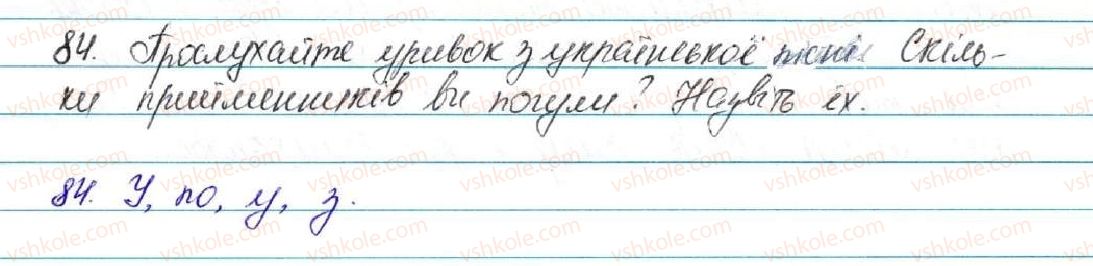 84. Прослухайте уривок з української пісні. Скіль-
ки прийменників ви почули? Назвіть їх.
84. У, по, у, з.